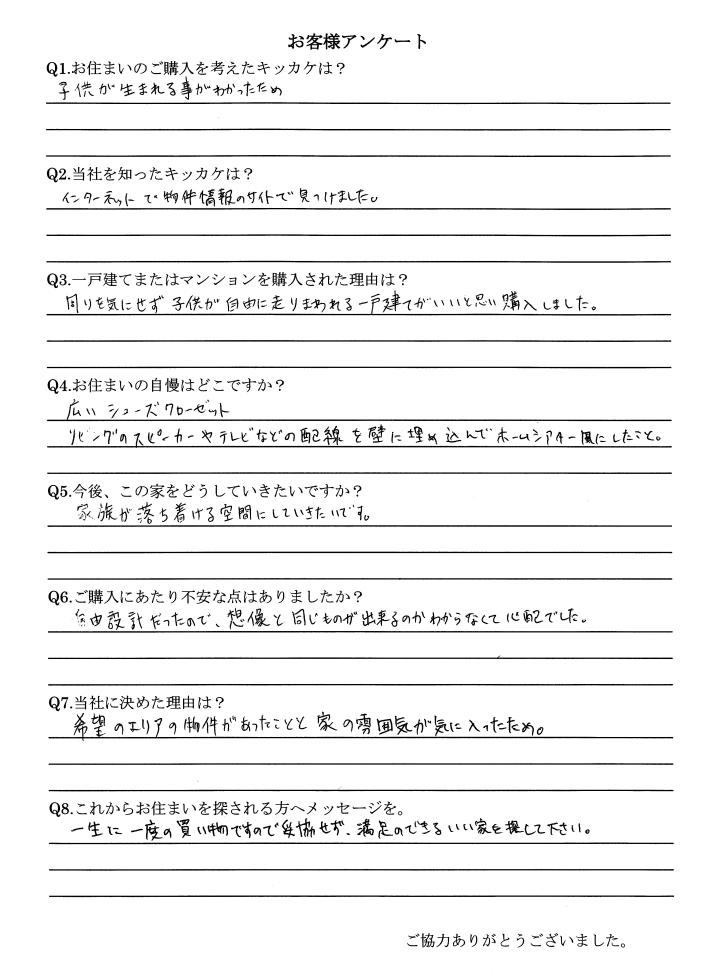 お客様アンケート
Q1.お住まいのご購入を考えたキッカケは？
子供が生まれる事がわかったため
Q2.当社を知ったキッカケは？
インターネットで物件情報のサイトで見つけました。
Q3.一戸建てまたはマンションを購入された理由は？
周りを気にせず子供が自由に走りまわれる一戸建てがいいと思い購入しました。
Q4.お住まいの自慢はどこですか？
広いシューズクローゼット
リビングのスピーカーやテレビなどの配線を壁に埋め込んでホームシアター風にしたこと。
Q5.今後、この家をどうしていきたいですか？
家族が落ち着ける空間にしていきたいです。
Q6.ご購入にあたり不安な点はありましたか？
自由設計だったので、想像と同じものが出来るのかわからなくて心配でした。
Q7.当社に決めた理由は？
希望のエリアの物件があったことと家の雰囲気が気に入ったため。
Q8.これからお住まいを探される方へメッセージを。
一生に一度の買い物ですので妥協せず、満足のできるいい家を探して下さい。
ご協力ありがとうございました。